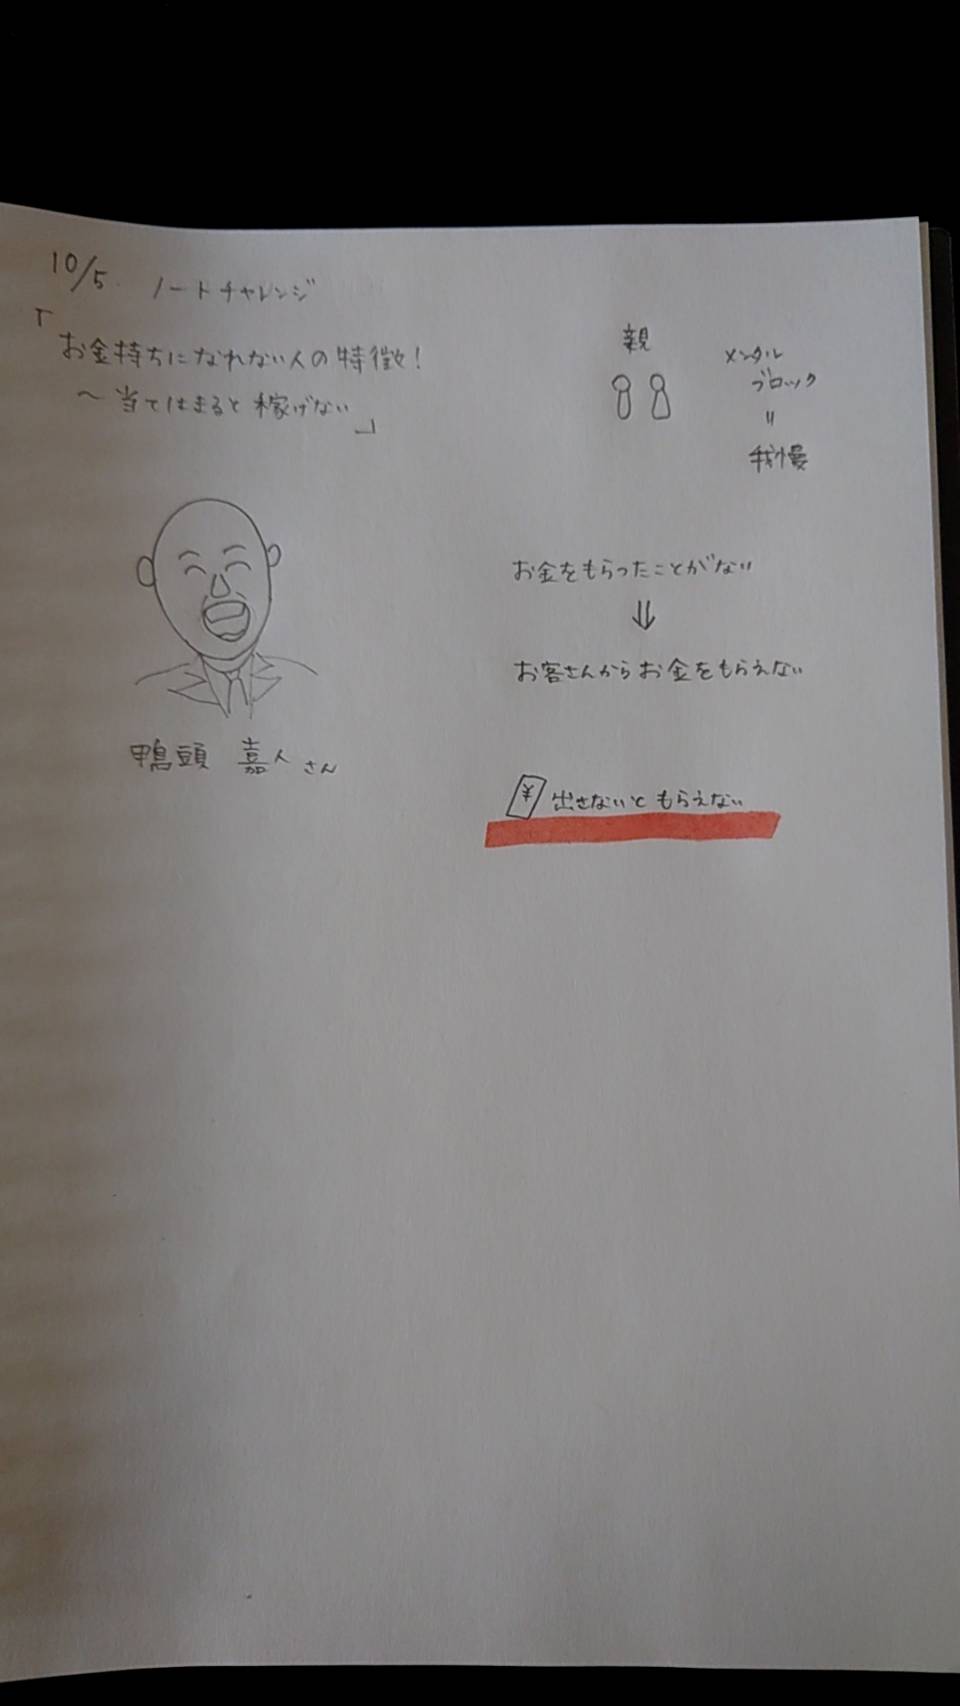 10/5 ノートチャレンジ
「お金持ちになれない人の特徴!
〜当てはまると稼げない」
鴨頭 嘉人さん
親
メンタル
ブロック
〃
我慢
お金をもらったことがない
⇓
お客さんからお金をもらえない
¥ 出さないともらえない